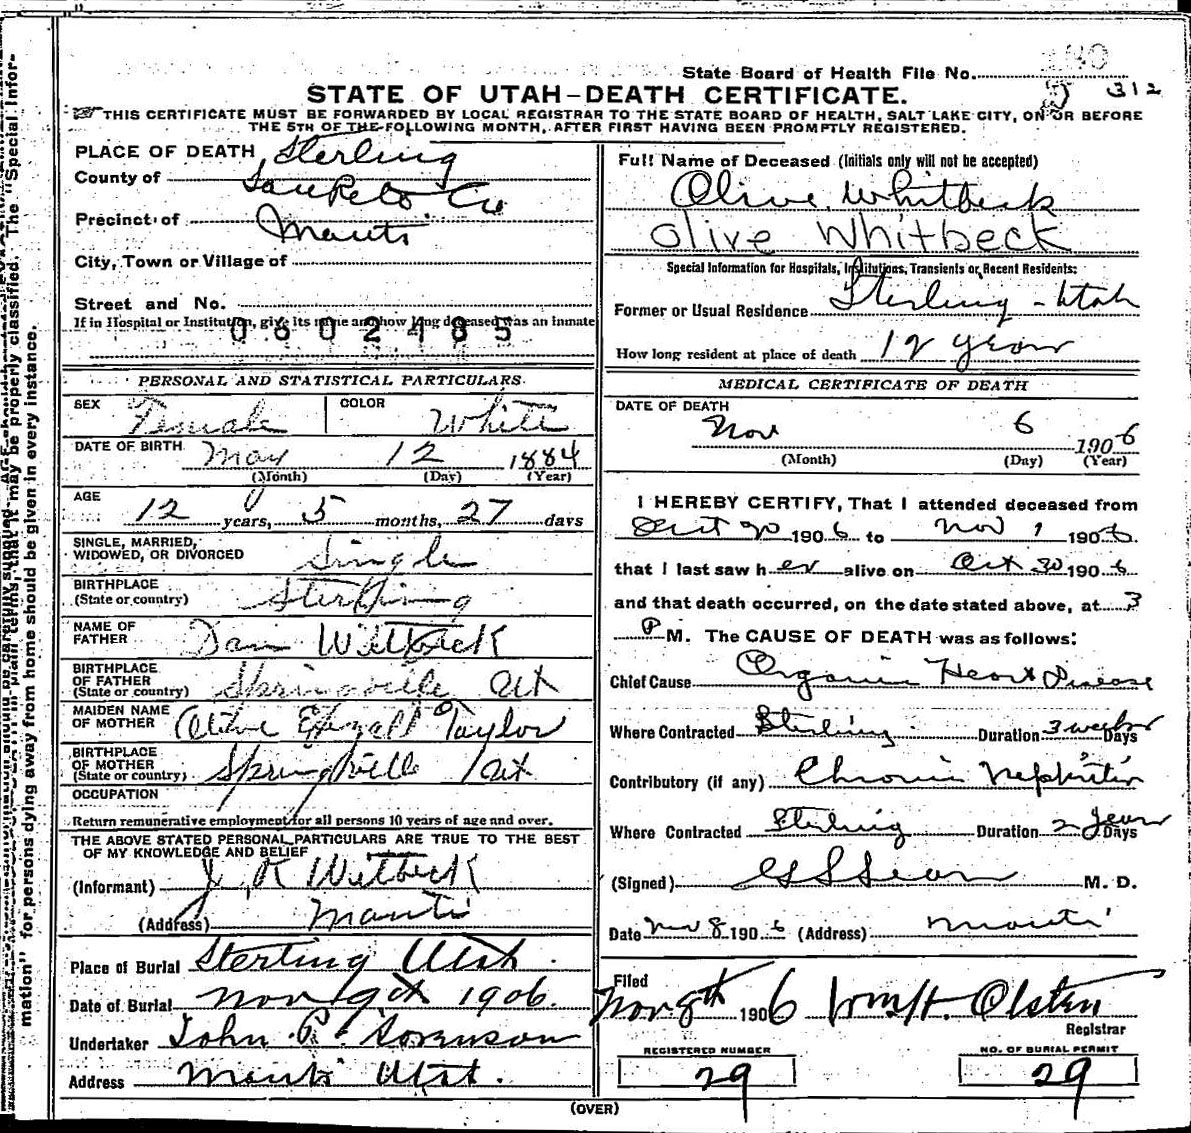 State Board of Health File No.
312
STATE OF UTAH–DEATH CERTIFICATE.
THIS CERTIFICATE MUST BE FORWARDED BY LOCAL REGISTRAR TO THE STATE BOARD OF HEALTH, SALT LAKE CITY, ON OR BEFORE
THE 5TH OF THE FOLLOWING MONTH, AFTER FIRST HAVING BEEN PROMPTLY REGISTERED.
PLACE OF DEATH Sterling
County of Sanpete Co
Precinct of Manti
City, Town or Village of
Street and No.
If in Hospital or Institution, give its name and how long deceased was an inmate
0602485
PERSONAL AND STATISTICAL PARTICULARS
SEX Female COLOR White
DATE OF BIRTH May 12 1884
(Month) (Day) (Year)
AGE
12 years, 5 months, 27 days
SINGLE, MARRIED,
WIDOWED, OR DIVORCED Single
BIRTHPLACE
(State or country) Sterling
NAME OF
FATHER Dan Witbeck
BIRTHPLACE
OF FATHER
(State or country) Springville Ut
MAIDEN NAME
OF MOTHER Taylor
BIRTHPLACE
OF MOTHER
(State or country) Springville Ut
OCCUPATION
Return remunerative employment for all persons 10 years of age and over.
THE ABOVE STATED PERSONAL PARTICULARS ARE TRUE TO THE BEST
OF MY KNOWLEDGE AND BELIEF
(Informant) J R Witbeck
(Address) Manti
Place of Burial Sterling Utah.
Date of Burial Nov 9th 1906.
Undertaker John P. Sorenson
Address Manti Utah.
Full Name of Deceased (Initials only will not be accepted)
Olive Whitbeck
Olive Whitbeck
Special Information for Hospitals, Institutions, Transients or Recent Residents:
Former or Usual Residence Sterling - Utah
How long resident at place of death 12 years
MEDICAL CERTIFICATE OF DEATH
DATE OF DEATH
Nov 6 1906
(Month) (Day) (Year)
I HEREBY CERTIFY, That I attended deceased from
190 6 to Nov 1 190 6
that I last saw h er alive on Oct 30 190 6
and that death occurred, on the date stated above, at 3
P M. The CAUSE OF DEATH was as follows:
Chief Cause Organic Heart Disease
Where Contracted Sterling Duration 3 weeks Days
Contributory (if any) Chronic Nephritis
Where Contracted Sterling Duration 2 years Days
(Signed) M. D.
Date Nov 8 190 6 (Address) Manti
Filed
Nov 8th 1906 Wm H. Olsten
Registrar
REGISTERED NUMBER
29
NO. OF BURIAL PERMIT
29
(OVER)
mation" for persons dying away from home should be given in every instance.